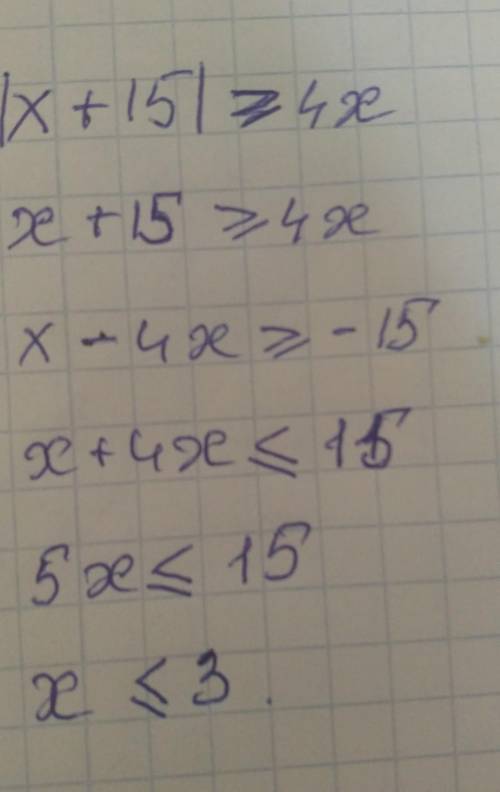 |x + 15| ⩾ 4x
x + 15 ⩾ 4x
x - 4x ⩾ - 15
x + 4x ⩽ 15
5x ⩽ 15
x ⩽ 3.